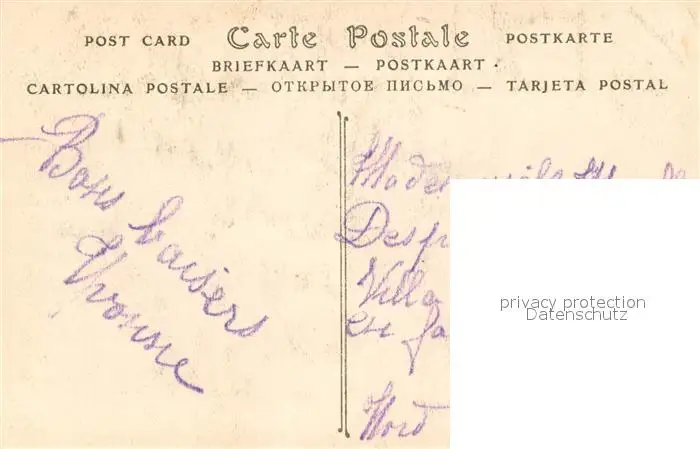 POST CARD Carte Postale POSTKARTE
BRIEFKAART — POSTKAART.
CARTOLINA POSTALE — ОТКРЫТОЕ ПИСЬМО — TARJETA POSTAL
Bons baisers
Yvonne
Villa
en
Nord
privacy protection
Datenschutz